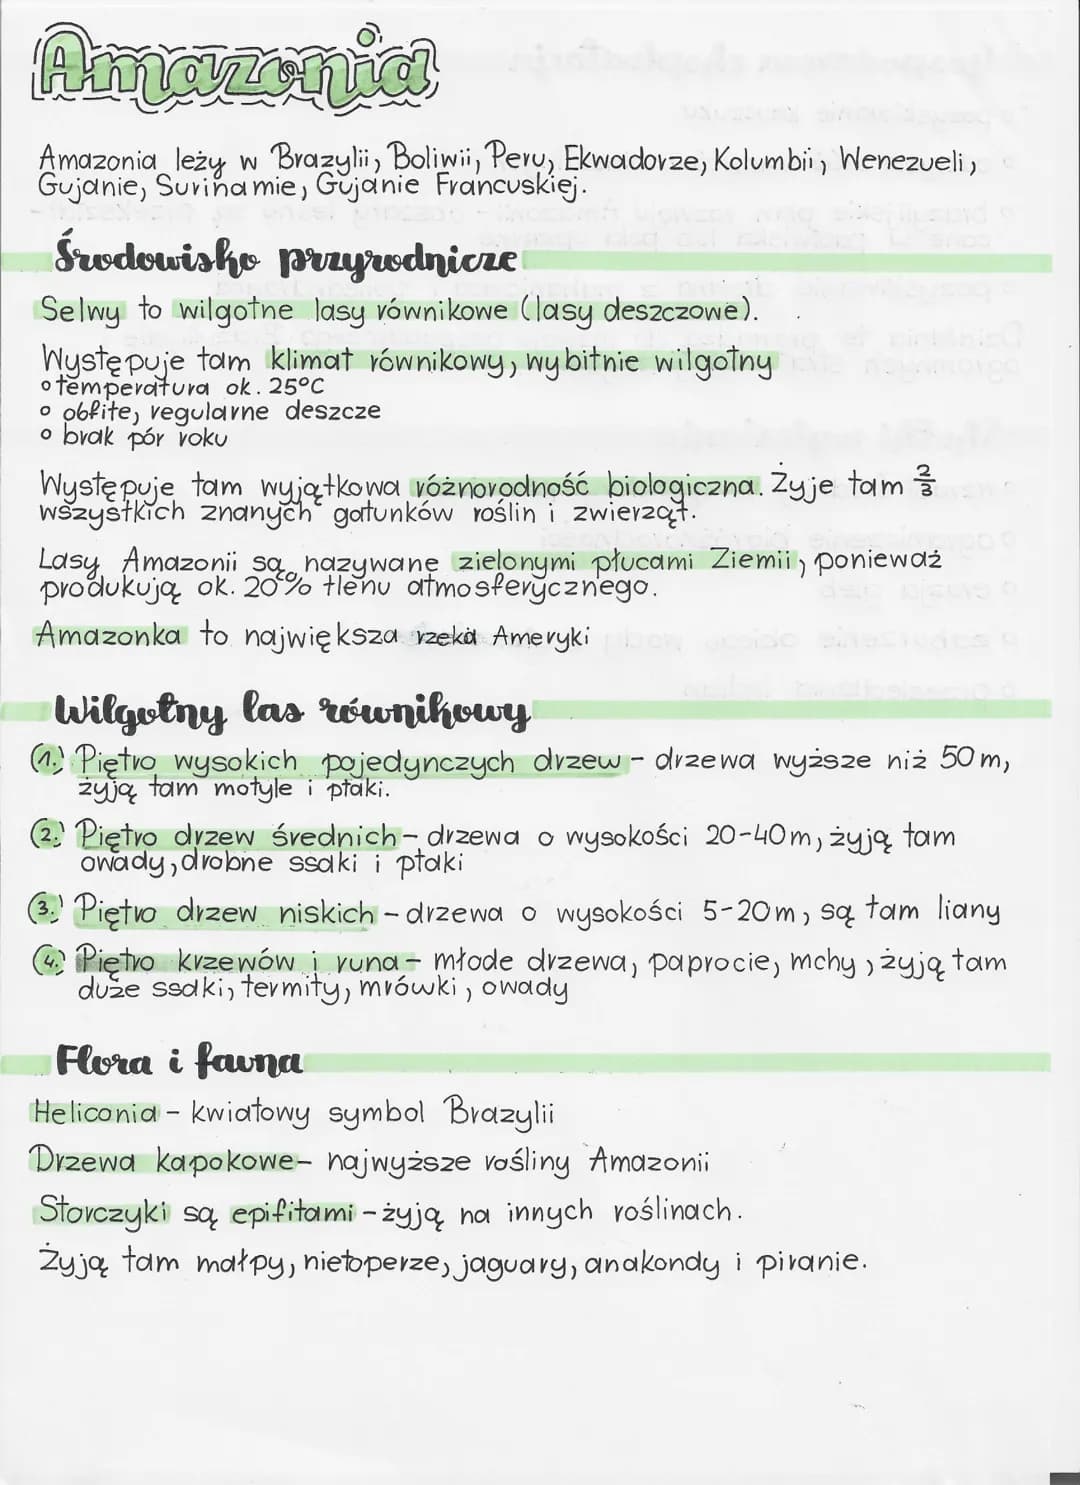 Amazonia
Amazonia leży w Brazylii, Boliwii, Peru, Ekwadorze, Kolumbii, Wenezueli,
Gujanie, Surinamie, Gujanie Francuskiej.
Środowisko przyrodnicze
Selwy to wilgotne lasy równikowe (lasy deszczowe).
Występuje tam klimat równikowy, wybitnie wilgotny
o temperatura ok. 25°C
o obfite, regularne deszcze
o brak pór roku
Występuje tam wyjątkowa różnorodność biologiczna. Żyje tam 2/3
wszystkich znanych gatunków roślin i zwierząt.
Lasy Amazonii są nazywane zielonymi płucami Ziemii, ponieważ
produkują ok. 20% tlenu atmosferycznego.
Amazonka to największa rzeka Ameryki
Wilgotny las równikowy
1. Piętro wysokich pojedynczych drzew - drzewa wyższe niż 50 m,
żyją tam motyle i ptaki.
2. Piętro drzew średnich - drzewa o wysokości 20-40m, żyją tam
owady, drobne ssaki i ptaki
3. Piętro drzew niskich - drzewa o wysokości 5-20m, są tam liany
4. Piętro krzewów i runa - młode drzewa, paprocie, mchy, żyją tam
duże ssaki, termity, mrówki, owady
Flora i fauna
Heliconia - kwiatowy symbol Brazylii
Drzewa kapokowe - najwyższe rośliny Amazonii
Storczyki są epifitami - żyją na innych roślinach.
Żyją tam małpy, nietoperze, jaguary, anakondy i piranie.